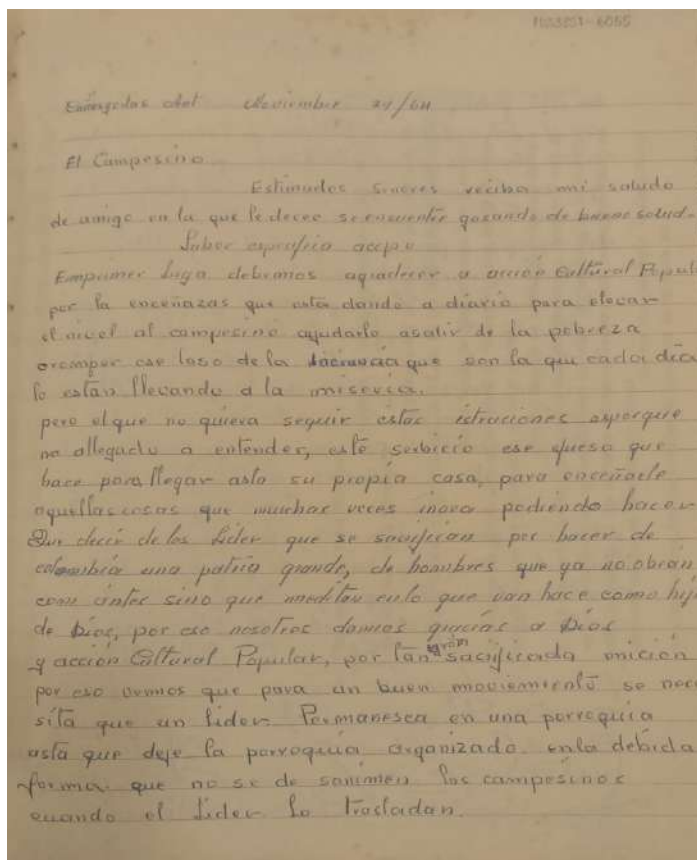 MSS3251-6055
Cañasgordas Ant Noviembre 24/64
El Campesino
Estimados Senores reciba mi saludo
de amigo en la que le deceo se encuentre gozando de buena salud.
Labor espesifica acepo
Emprimer Luga debemos agradecer a acción Cultural Popula
por la enceñazas que está dando a diario para elevar
el nivel al campesino ayudarlo asalir de la pobreza
oromper ese laso de la que son la que cada dia
lo están llevando a la miseria.
pero el que no quiera seguir estas istruciones esporque
no allegado a entender, esté serbicio ese que
hace para llegar asta su propia casa, para enceñarle
aquellas cosas que muchas veces inora podiendo hacer
Que decir de los Lider que se sacrifican por hacer de
colombia una patria grande, de hombres que ya no obrán
com antes sino que meditan enlo que van hace como hij
de Dios, por eso nosotros damos gracias a Dios
y acción Cultural Popular, por tan gran sacrificada mición
por eso que para un buen moviemiento se nece
sita que un Lider Permanesca en una porroquia
asta que deje la porroquia organizado enla debida
forma que no se de sanimen los campesinos
cuando el Lider lo trasladan.